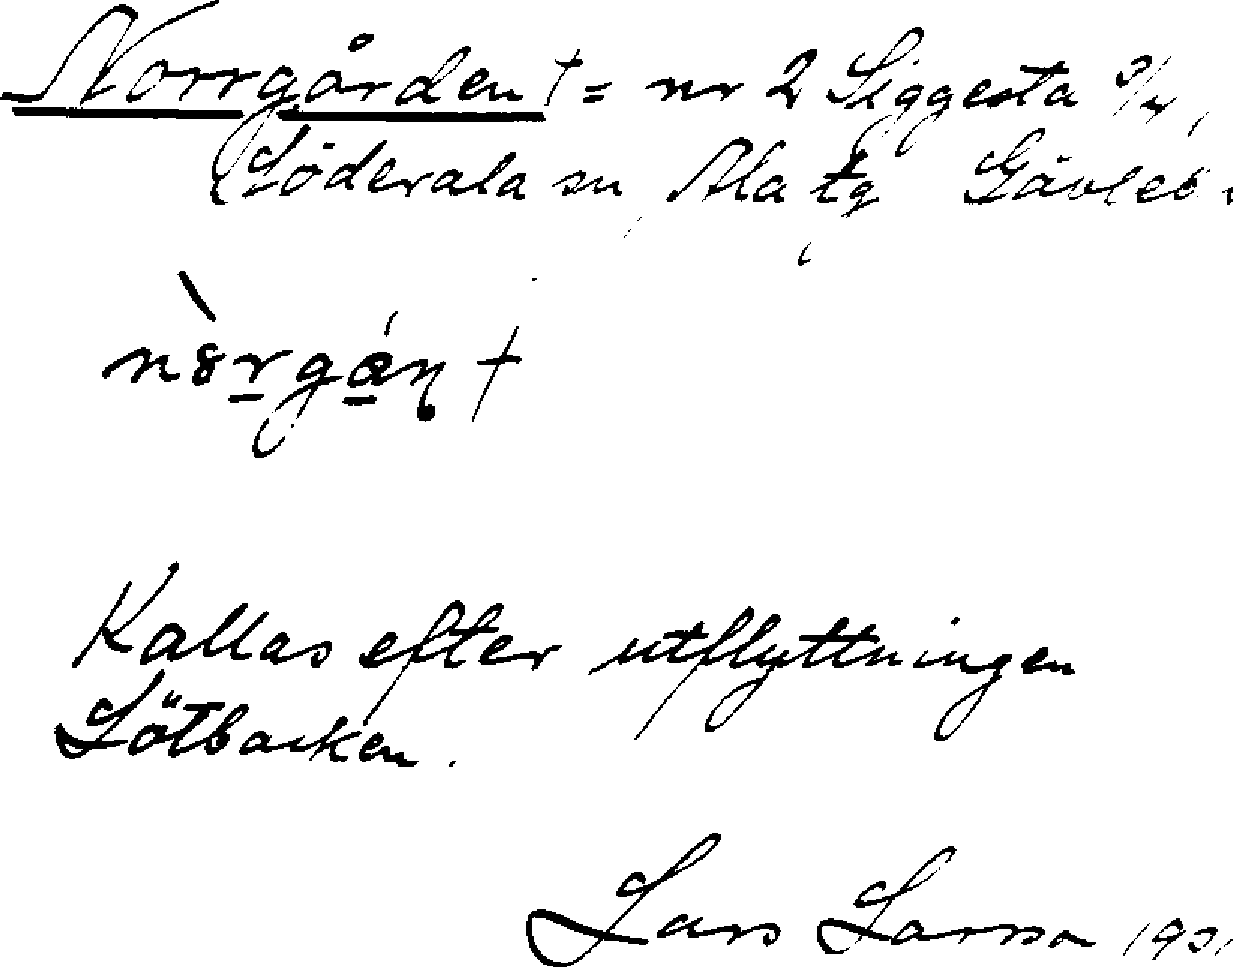 Norrgården † = nr 2 Siggesta
Söderala sn, Ala tg Gävleb.
Kallas efter utflyttningen
Lötbacken.
Lars Larsson